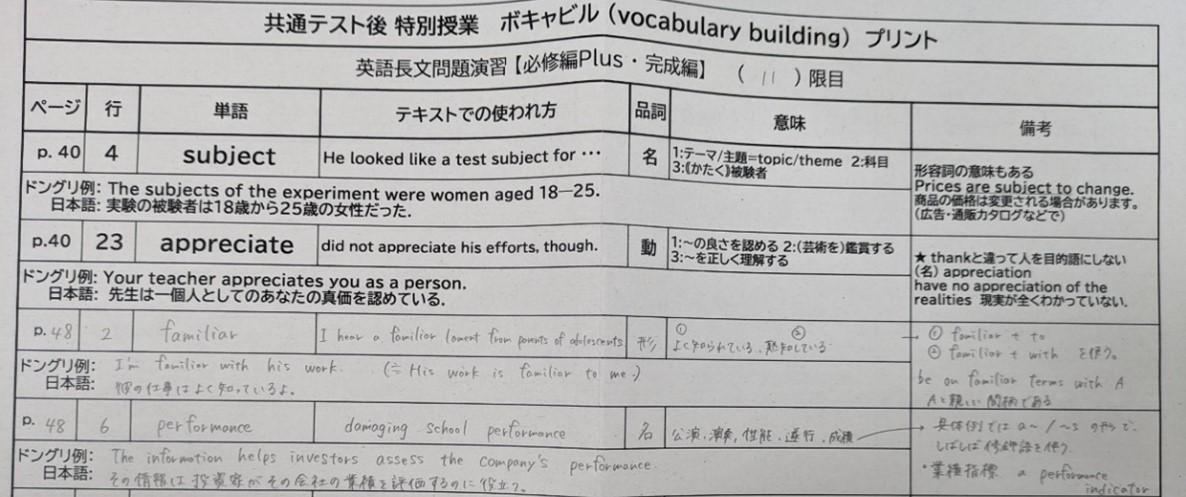 共通テスト後 特別授業 ボキャビル (vocabulary building) プリント
英語長文問題演習【必修編Plus・完成編】 ( 11 )限目
ページ 行 単語 テキストでの使われ方 品詞 意味 備考
p. 40 4 subject He looked like a test subject for ・・・ 名 1:テーマ/主題=topic/theme 2:科目
3:《かたく》被験者
形容詞の意味もある
Prices are subject to change.
商品の価格は変更される場合があります。
(広告・通販カタログなどで)
ドングリ例: The subjects of the experiment were women aged 18―25.
日本語: 実験の被験者は18歳から25歳の女性だった.
p.40 23 appreciate did not appreciate his efforts, though. 動 1:~の良さを認める 2:(芸術を)鑑賞する
3:~を正しく理解する
★ thankと違って人を目的語にしない
(名) appreciation
have no appreciation of the
realities 現実が全くわかっていない.
ドングリ例: Your teacher appreciates you as a person.
日本語: 先生は一個人としてのあなたの真価を認めている.
p. 48 2 familiar I hear a familiar lament from parents of adolescents 形 ① よく知られている. ② 熟知している
→ ① familiar + to
② familiar + with を使う。
be on familiar terms with A
Aと親しい間柄である
ドングリ例: I'm familiar with his work. (≒ His work is familiar to me.)
日本語: 彼の仕事はよく知っているよ。
p. 48 6 performance damaging school performance 名 公演, 演奏, 性能, 遂行, 成績
→ 具体例では a~/~s の形で.
しばしば修飾語を使う.
・業種指標 a performance
indicator
ドングリ例: The information helps investors assess the company's performance.
日本語: その情報は投資家がその会社の業績を評価するのに役立つ。